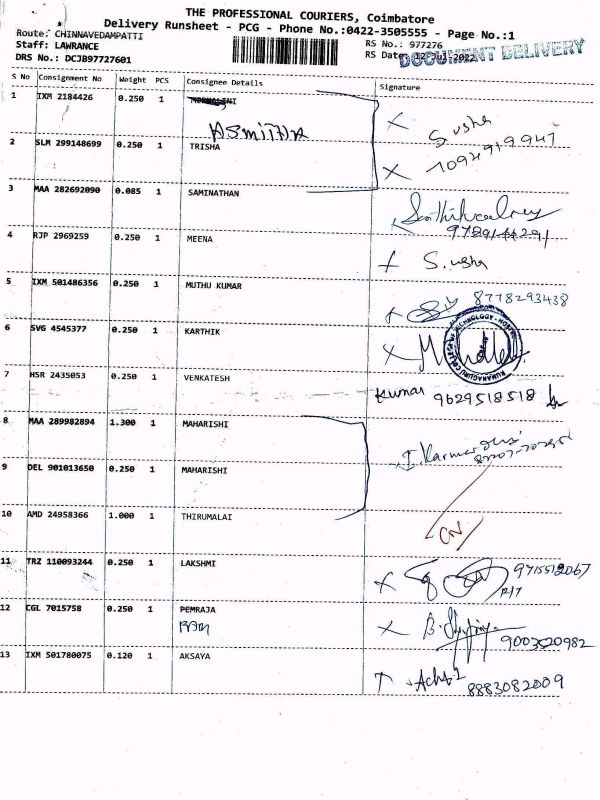 THE PROFESSIONAL COURIERS, Coimbatore
Delivery Runsheet - PCG - Phone No.:0422-3505555 - Page No.:1
Route: CHINNAVEDAMPATTI
RS No.: 977276
Staff: LAWRANCE
RS Date: 12-Jul-2022
DOCUMENT DELIVERY
DRS No.: DCJB97727601
S No Consignment No Weight PCS Consignee Details Signature
1 IXM 2184426 0.250 1
ASMITHA
Susha
2 SLM 299148699 0.250 1 TRISHA
3 MAA 282692090 0.085 1 SAMINATHAN
4 RJP 2969259 0.250 1 MEENA S.usha
5 IXM 501486356 0.250 1 MUTHU KUMAR 8778293438
6 SVG 4545377 0.250 1 KARTHIK
7 HSR 2435053 0.250 1 VENKATESH Kumar 9629518518
8 MAA 289982894 1.300 1 MAHARISHI
9 DEL 901013650 0.250 1 MAHARISHI
10 AMD 24958366 1.000 1 THIRUMALAI
CN
11 TRZ 110093244 0.250 1 LAKSHMI
12 CGL 7015758 0.250 1 PEMRAJA
9003020982
13 IXM 501780075 0.120 1 AKSAYA
8883082009